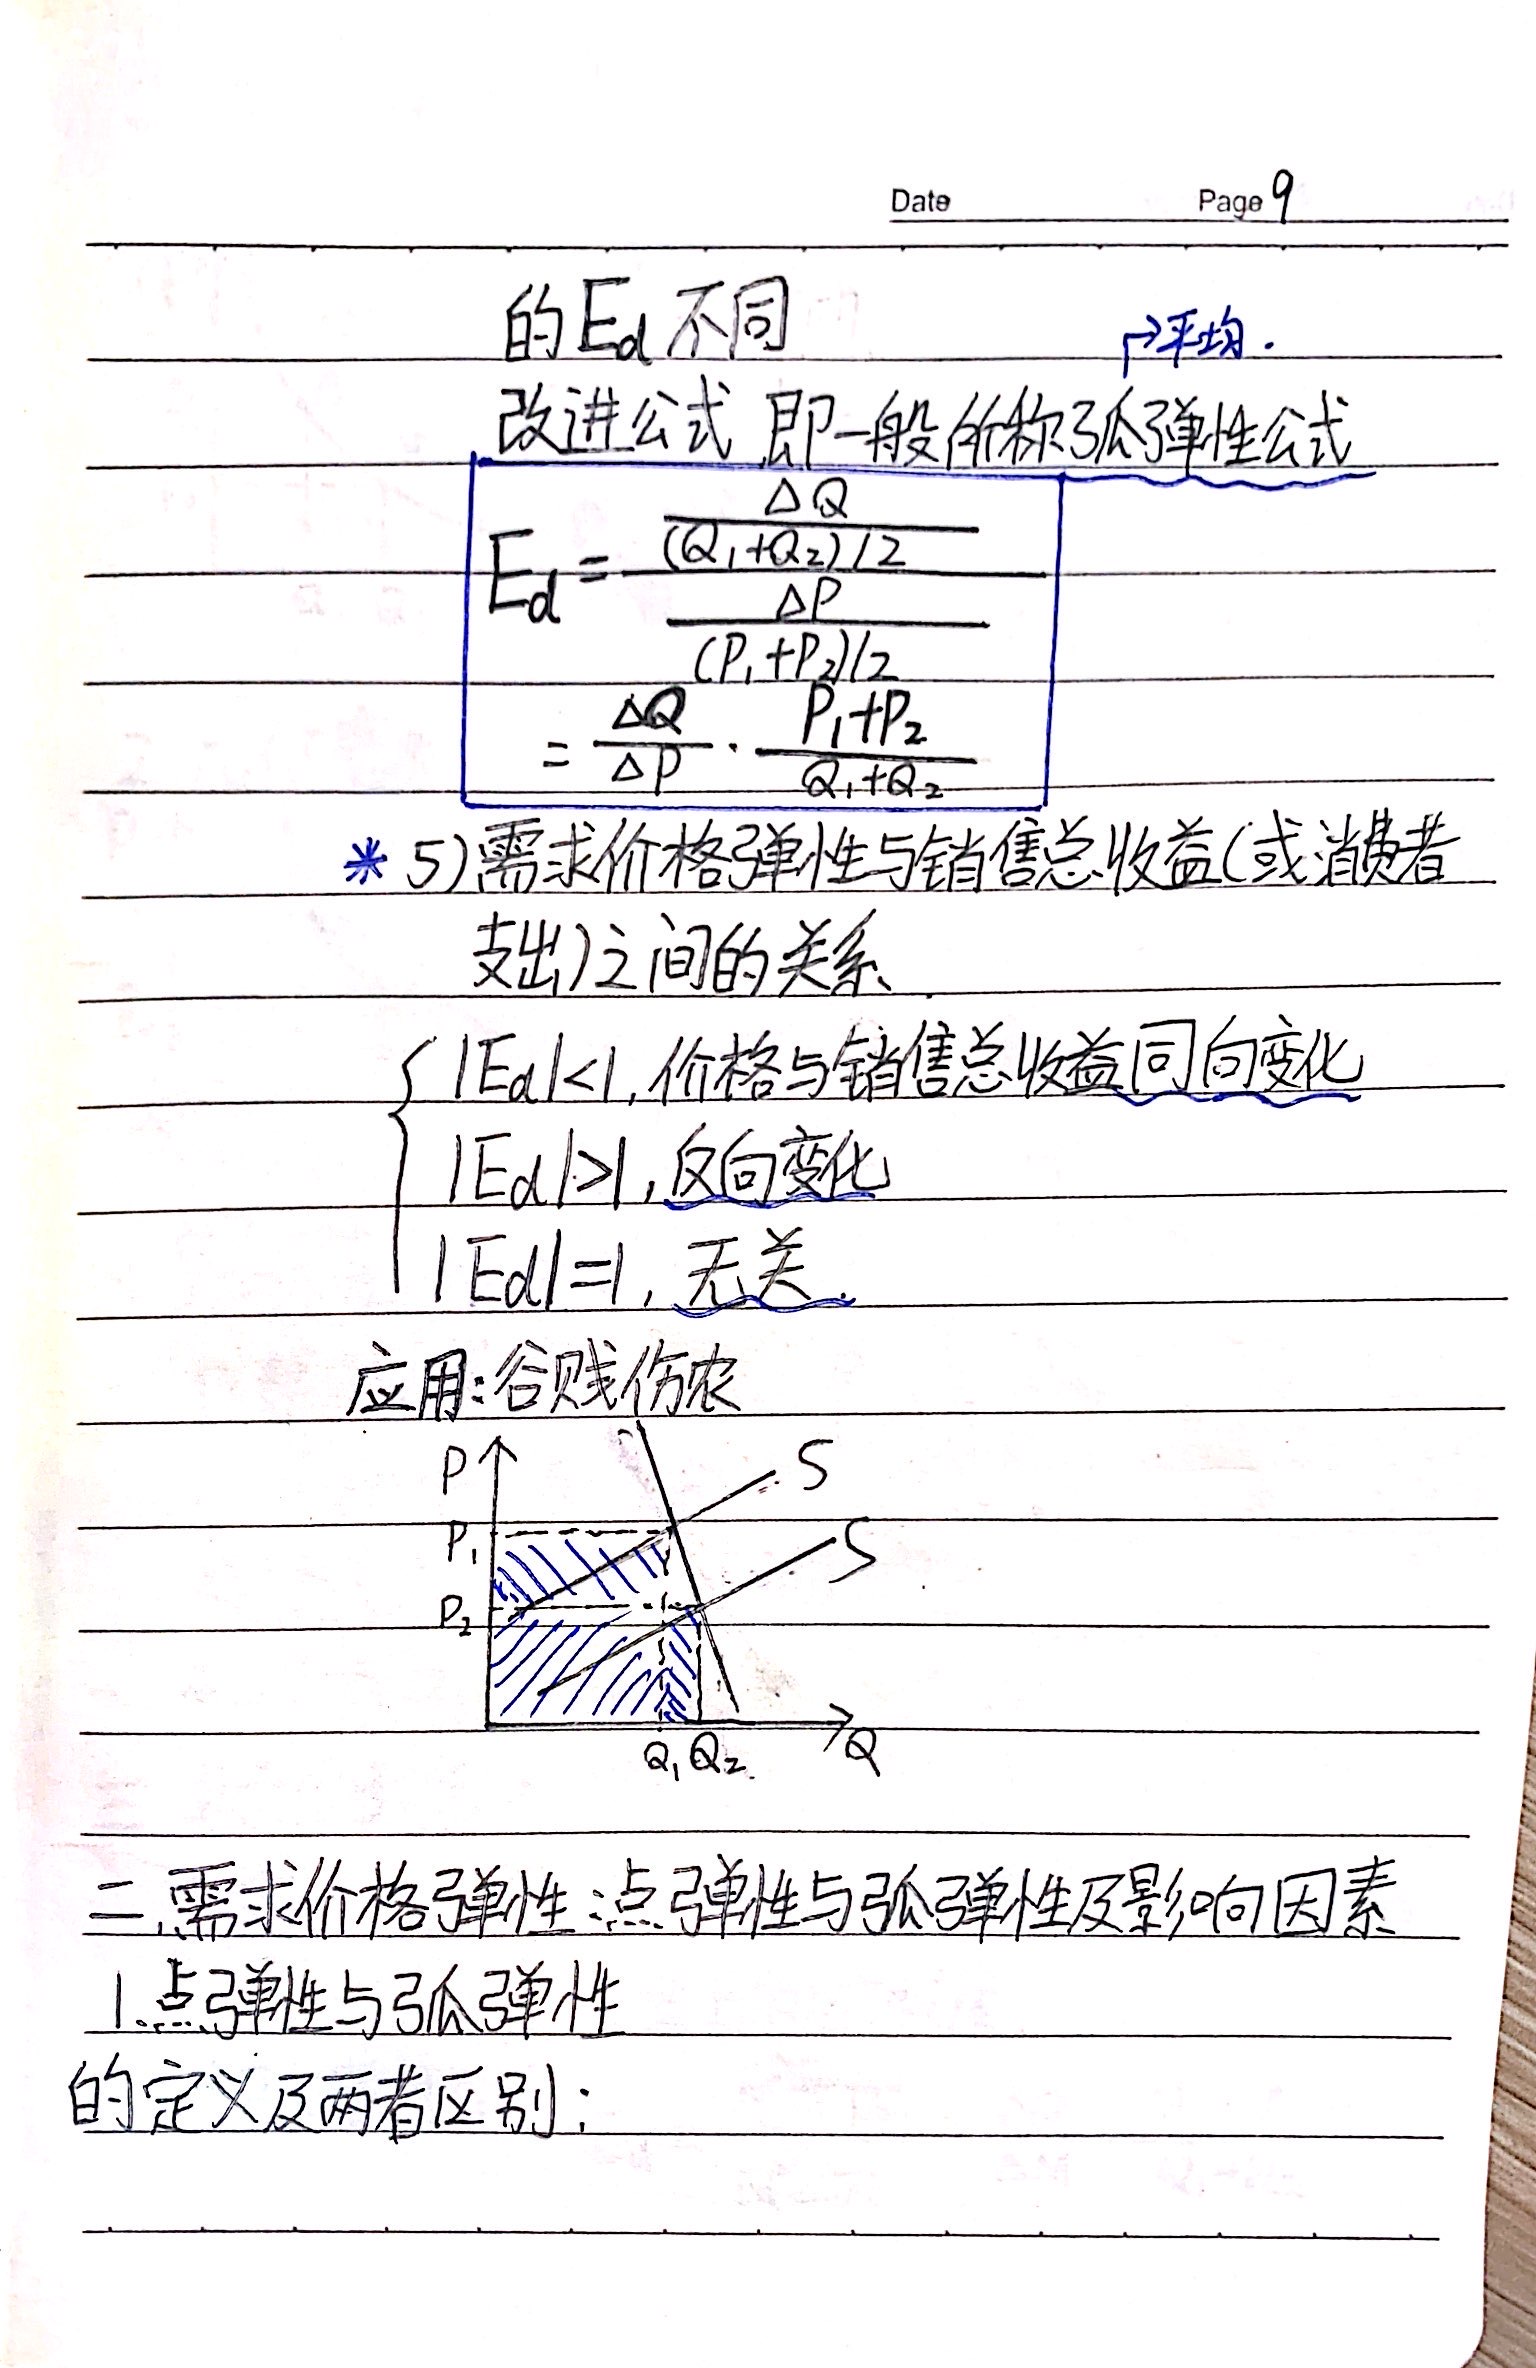 Date Page 9
的Ed不同
→平均.
改进公式 即一般所称弧弹性公式
ΔQ
(Q₁+Q₂)/2
Ed =
ΔP
(P₁+P₂)/2
= ΔQ/ΔP · P₁+P₂/Q₁+Q₂
* 5)需求价格弹性与销售总收益(或消费者
支出)之间的关系
|Ed|<1,价格与销售总收益同向变化
|Ed|>1,反向变化
|Ed|=1,无关.
应用:谷贱伤农
P S
P₁
S
P₂
Q₁ Q₂ Q
二.需求价格弹性:点弹性与弧弹性及影响因素
1.点弹性与弧弹性
的定义及两者区别: